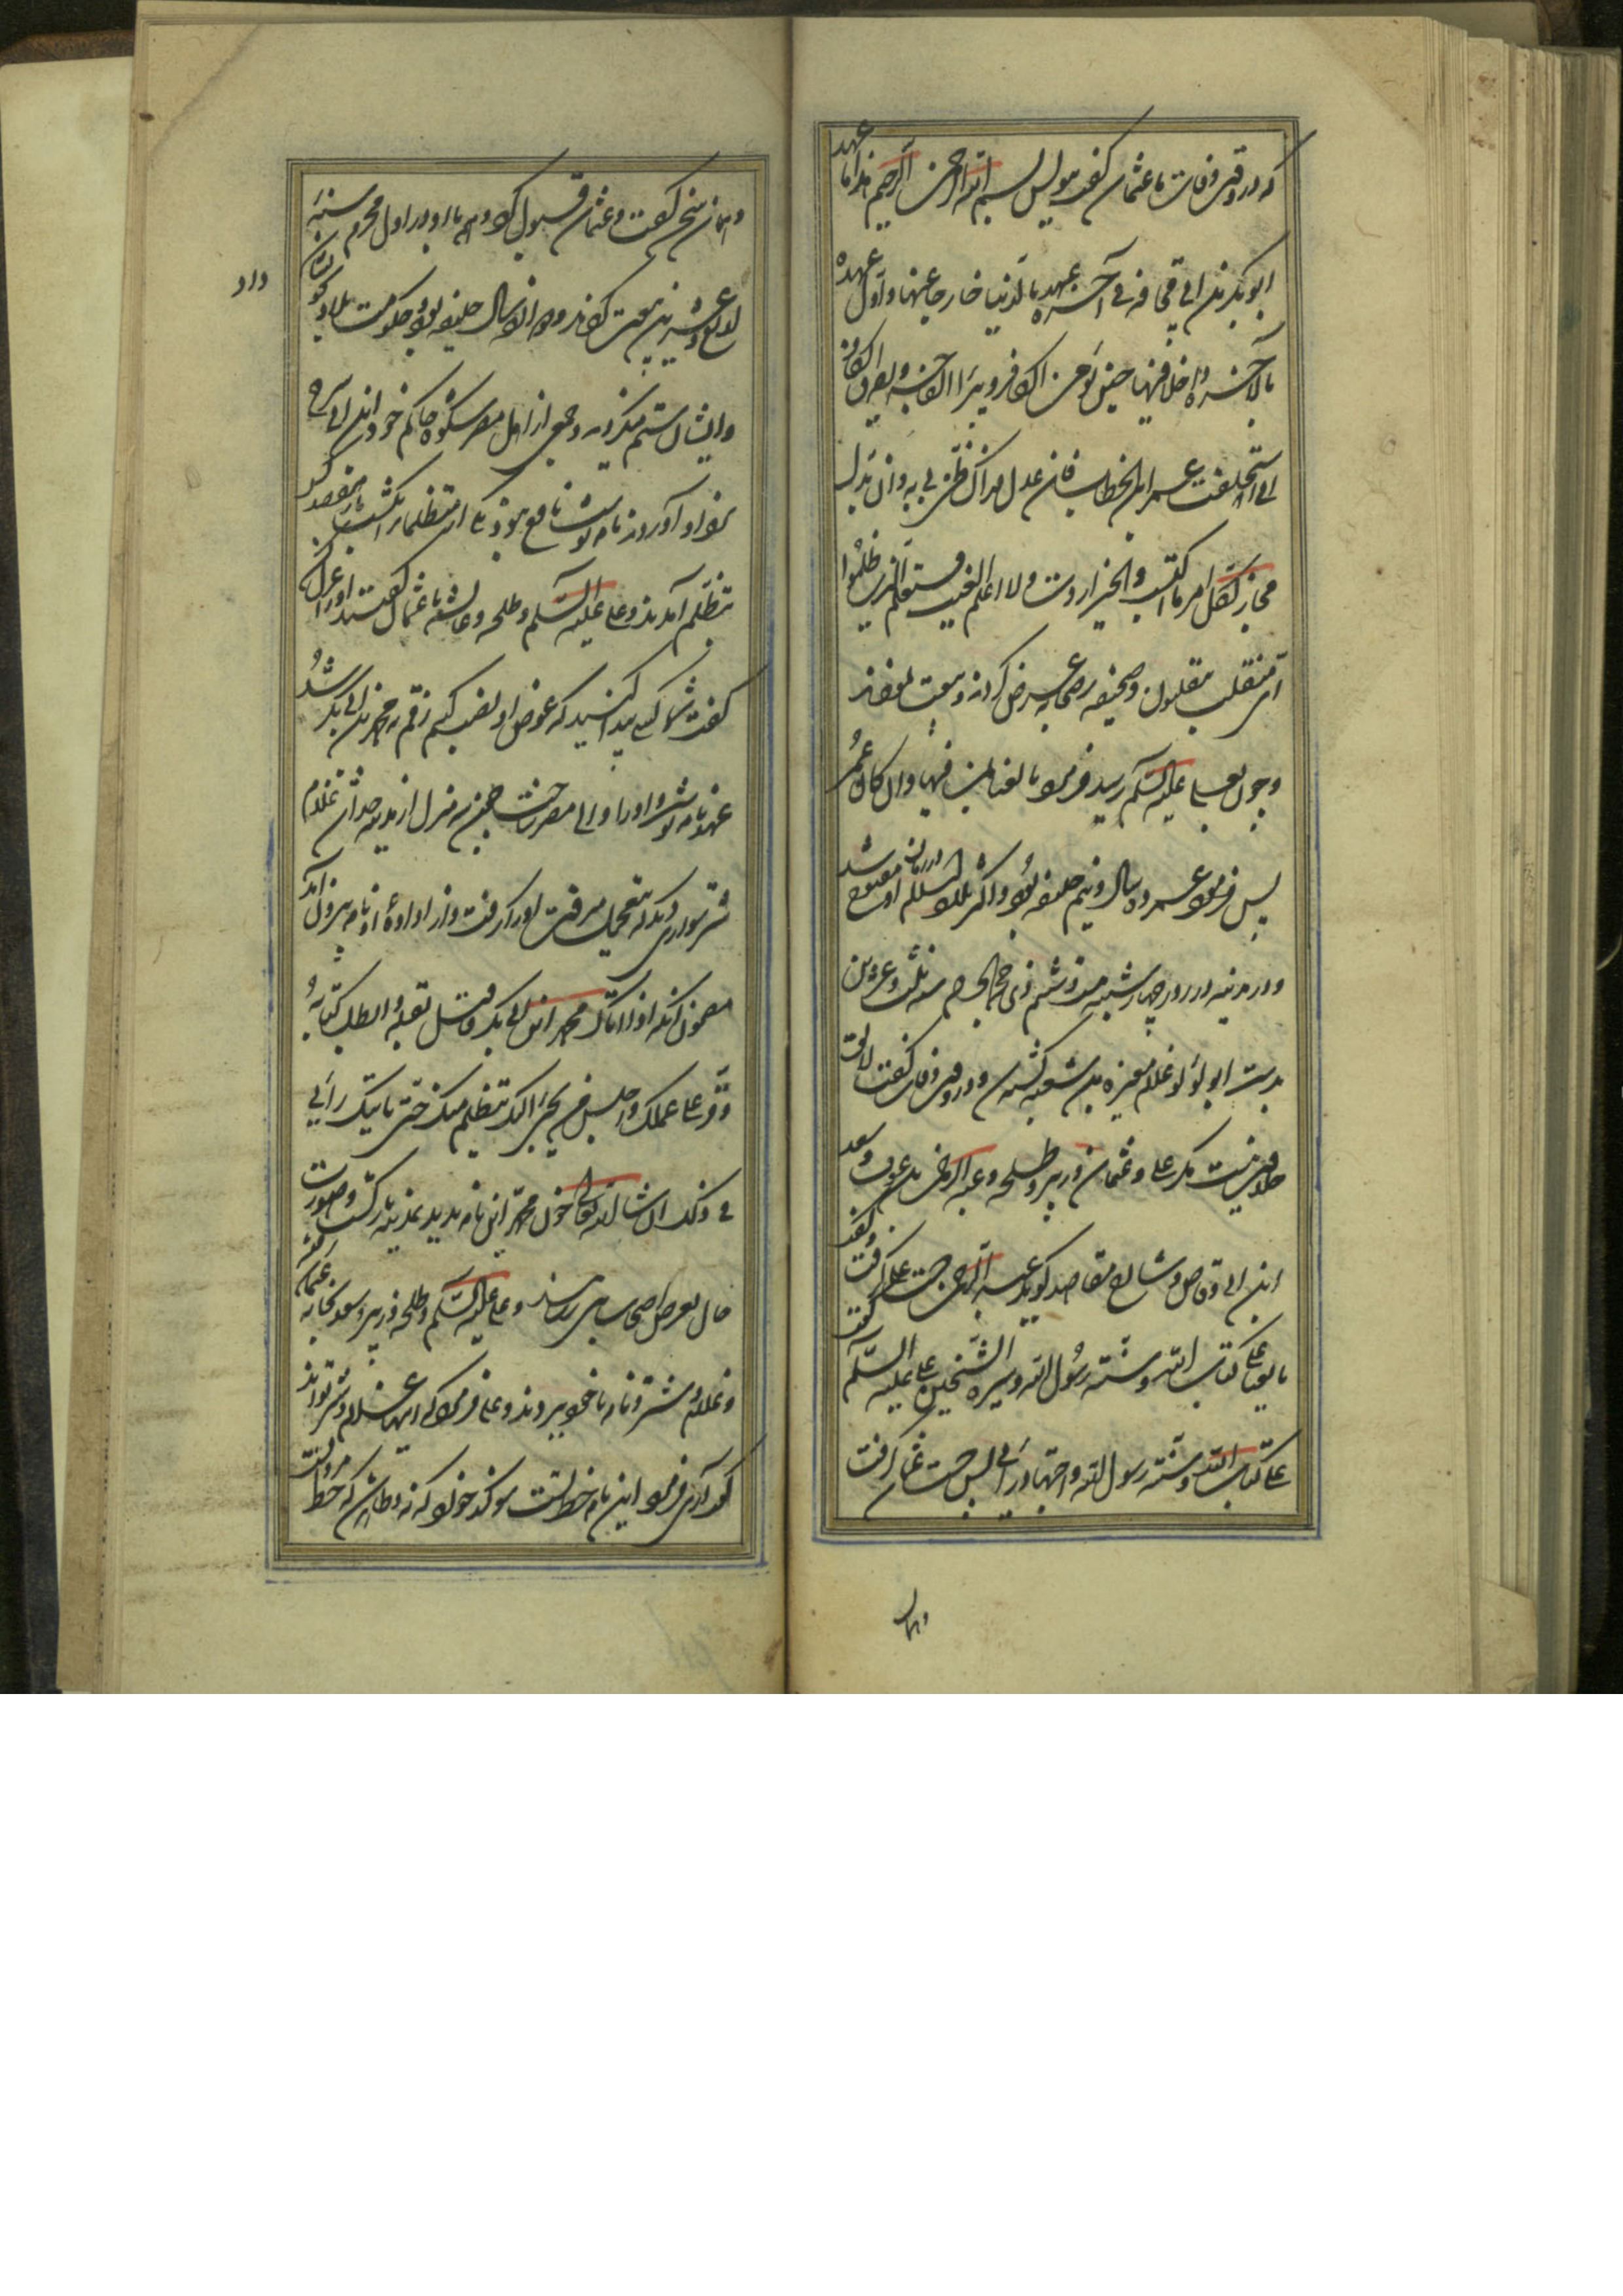 که در وقت وفات با عثمان گفت بنویس بسم الله الرحمن الرحیم هذا ما عهد
ابو بکر بن ابی قحافه فی آخر عهده بالدنیا خارجا عنها و اول عهده
بالآخره داخلا فیها حین یؤمن الکافر و یبر الفاجر و یصدق الکاذب
انی استخلفت عمر بن الخطاب فان عدل فذاک ظنی به وان بدل
فجار فلکل امرء ما اکتسب و الخیر اردت و لا اعلم الغیب و سیعلم الذین ظلموا
ای منقلب ینقلبون و صحیفه بر صحابه عرض کردند و بیعت نمودند
و چون بعلی علیه السلام رسید فرمود بایعنا لمن فیها و ان کان عمر
پس فرمود عمر ده سال و نیم خلیفه بود و اکثر بلاد اسلام در زمان او مفتوح شد
و در مدینه در روز چهارشنبه بیست و ششم ذی حجة الحرام سنه ثلث و عشرین
بدست ابو لؤلؤ غلام مغیره بن شعبه کشته شد و در وقت وفات گفت لایق
خلافت نیست مگر علی و عثمان و زبیر و طلحه و عبد الرحمن بن عوف و سعد
ابن ابی وقاص و شارح مقاصد گوید عبد الرحمن دست علی گرفت و گفت
بایعنا علی کتاب الله و سنة رسول الله و سیرة الشیخین علی علیه السلام گفت
علی کتاب الله و سنة رسول الله و اجتهاد رایی پس دست عثمان گرفت
و همان
و همان سخن گفت و عثمان قبول کرد و همه با او در اول محرم سنه
اربع و عشرین بیعت کردند و دوازده سال خلیفه بود و حکومت بلاد بخویشان
داد
و ایشان ستم میکردند و جمعی از اهل مصر شکوه حاکم خود ابن ابی سرح
نزد او آوردند نامه نوشت نافع نبود یکی از متظلمان را بکشت باز هفتصد کس
بتظلم آمدند و علی علیه السلام و طلحه و عایشه با عثمان گفتند او را عزل کن
گفت شما کسی پیدا کنید که عوض او نصب کنم رقم بر محمد بن ابی بکر شد
عهدنامه نوشت و او را والی مصر ساخت چون سه منزل از مدینه جدا شد غلام
شتر سواری دیدند بتعجیل میرفت او را گرفت و از اداوه او نامه بیرون آمد
مضمون آنکه اذا اتاک محمد ابن ابی بکر فاحتل بقتله و ابطل کتابه
و قر علی عملک و احبس من یجیئ الیک یتظلم منک حتی یاتیک رأیی
فی ذلک ان شاء الله تعالی چون محمد این نامه بدید بمدینه بازگشت و صورت
حال بعرض اصحاب رسانید و علی علیه السلام و طلحه و زبیر و سعد بخانه عثمان رفتند
و غلام و شتر و نامه با خود بردند و علی فرمود که اینها غلام و شتر تواند
گفت آری فرمود این نامه خط تست سوگند خورد که نه و ظاهر شد که خط مروانست